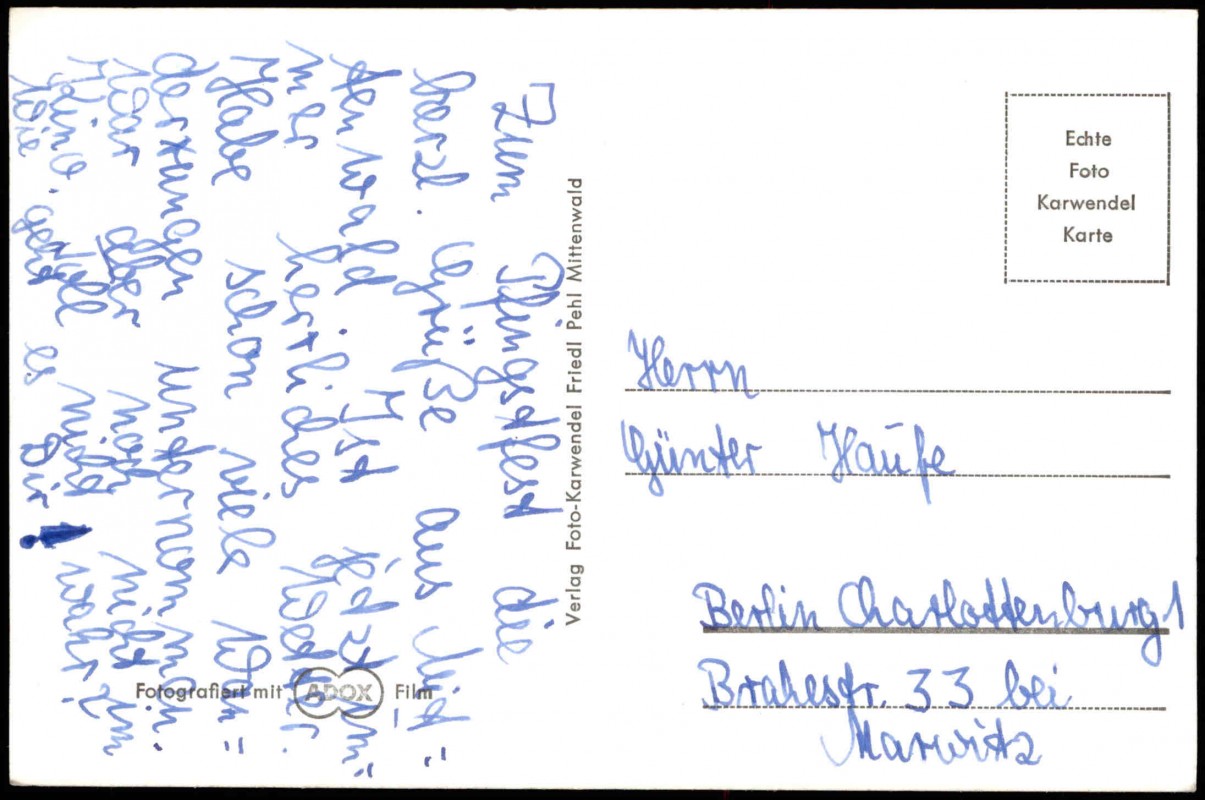 Zum Pfingstfest die
herzl. Grüße aus Mit=
tenwald. Ist jetzt im=
mer herrliches Wetter.
Habe schon viele Wan=
derungen unternommen.
War aber noch nicht im
Kino. gell nicht wahr?
Wie geht es Dir
Verlag Foto-Karwendel Friedl Pehl Mittenwald
Fotografiert mit ADOX Film
Echte
Foto
Karwendel
Karte
Herrn
Günter Haufe
Berlin Charlottenburg 1
Brahestr. 33 bei
Marwitz